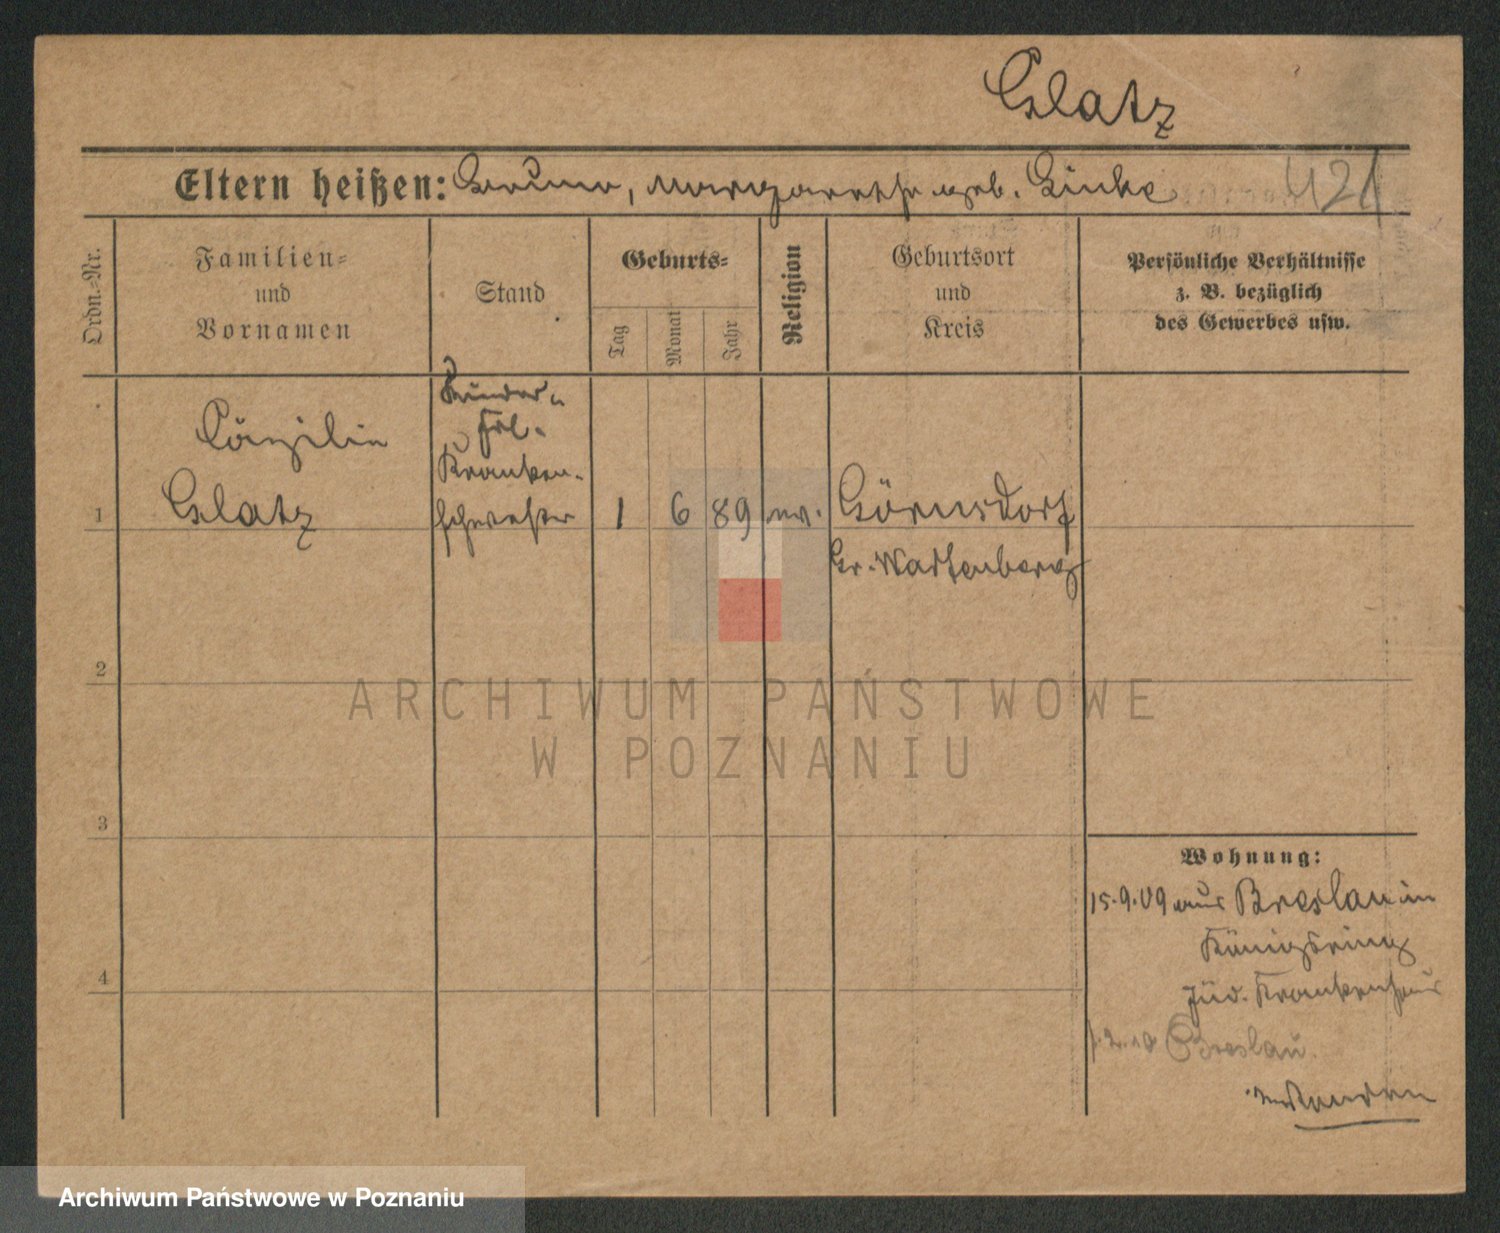 Glatz
Eltern heißen: Bruno, Margarethe geb. Linke
421
Ordn.=Nr.
Familien=
und
Vornamen
Stand
Geburts=
Tag
Monat
Jahr
Religion
Geburtsort
und
Kreis
Persönliche Verhältnisse
z. B. bezüglich
des Gewerbes usw.
Kinder
Frl.
Cäzilie
Kranken-
1 Glatz schwester 1 6 89 ev. Görnsdorf
Gr. Wartenberg
2
ARCHIWUM PAŃSTWOWE
W POZNANIU
3
Wohnung:
15.9.09 aus Breslau in
Königsring
jüd. Krankenhaus
1.2.10 Breslau.
4
Archiwum Państwowe w Poznaniu